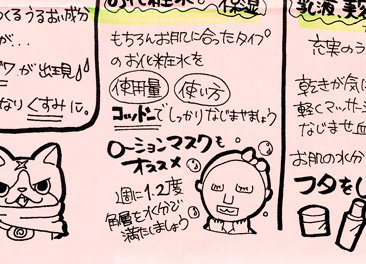 つくるうるおい成分
が…
ワが出現♪
なりくすみに。
お化粧水。 保湿
もちろんお肌に合ったタイプ
のお化粧水を
使用量 使い方
コットンでしっかりなじませましょう
ローションマスクも
オススメ
1週に1.2度
角層を水分で
満たしましょう
乳液、美
充実のう
乾きが気に
軽くマッサージ
なじませ血
お肌の水分
フタをし